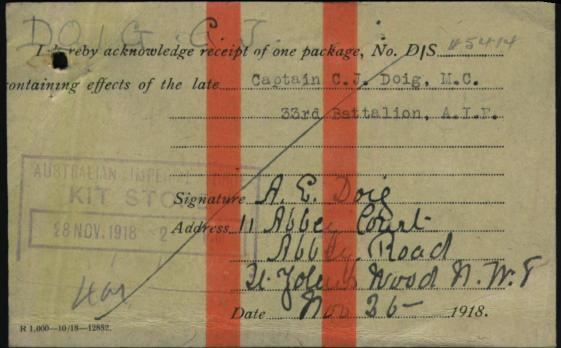 DOIG. C.J.
I hereby acknowledge receipt of one package, No. D/S 45414
containing effects of the late Captain C.J. Doig, M.C.
33rd Battalion, A.I.F.
AUSTRALIAN IMPERIAL
KIT STO
28 NOV. 1918
Signature A. E. Doig
Address 11 Abbey Court
Abbey Road
St. John's Wood N.W.
Date Nov 26 1918.
R 1,000—10/18—12882.